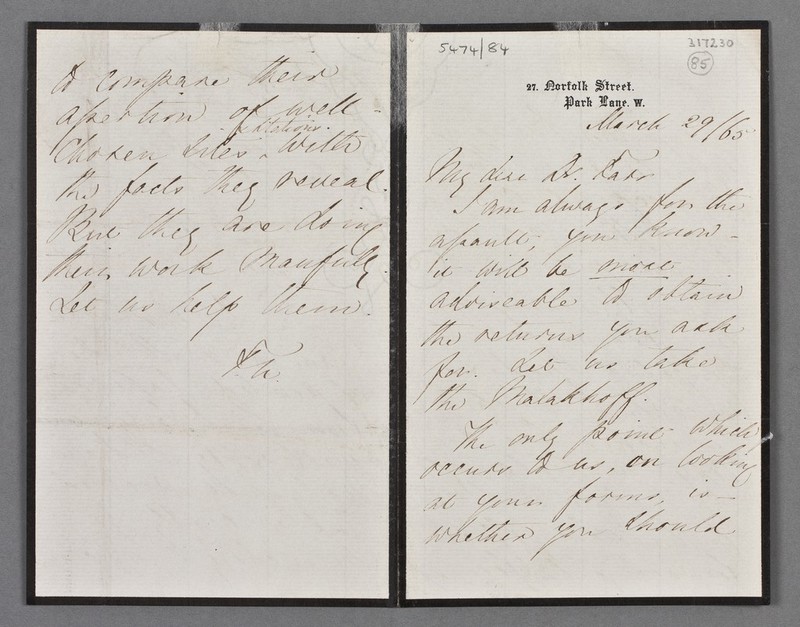 5474/84
317230
85
27. Norfolk Street.
Park Lane. W.
March 29/65
My dear Dr. Farr
I am always for the
assault, you know -
it will be more
adviseable to obtain
the returns you ask
for. Let us take
the Malakhoff.
The only point which
occurs to us, on looking
at your forms, is -
whether you should
to compare their
assertion of well-
& stations.
chosen sites, with
the facts they reveal.
But they are doing
their work manfully.
Let us help them.
F.N.